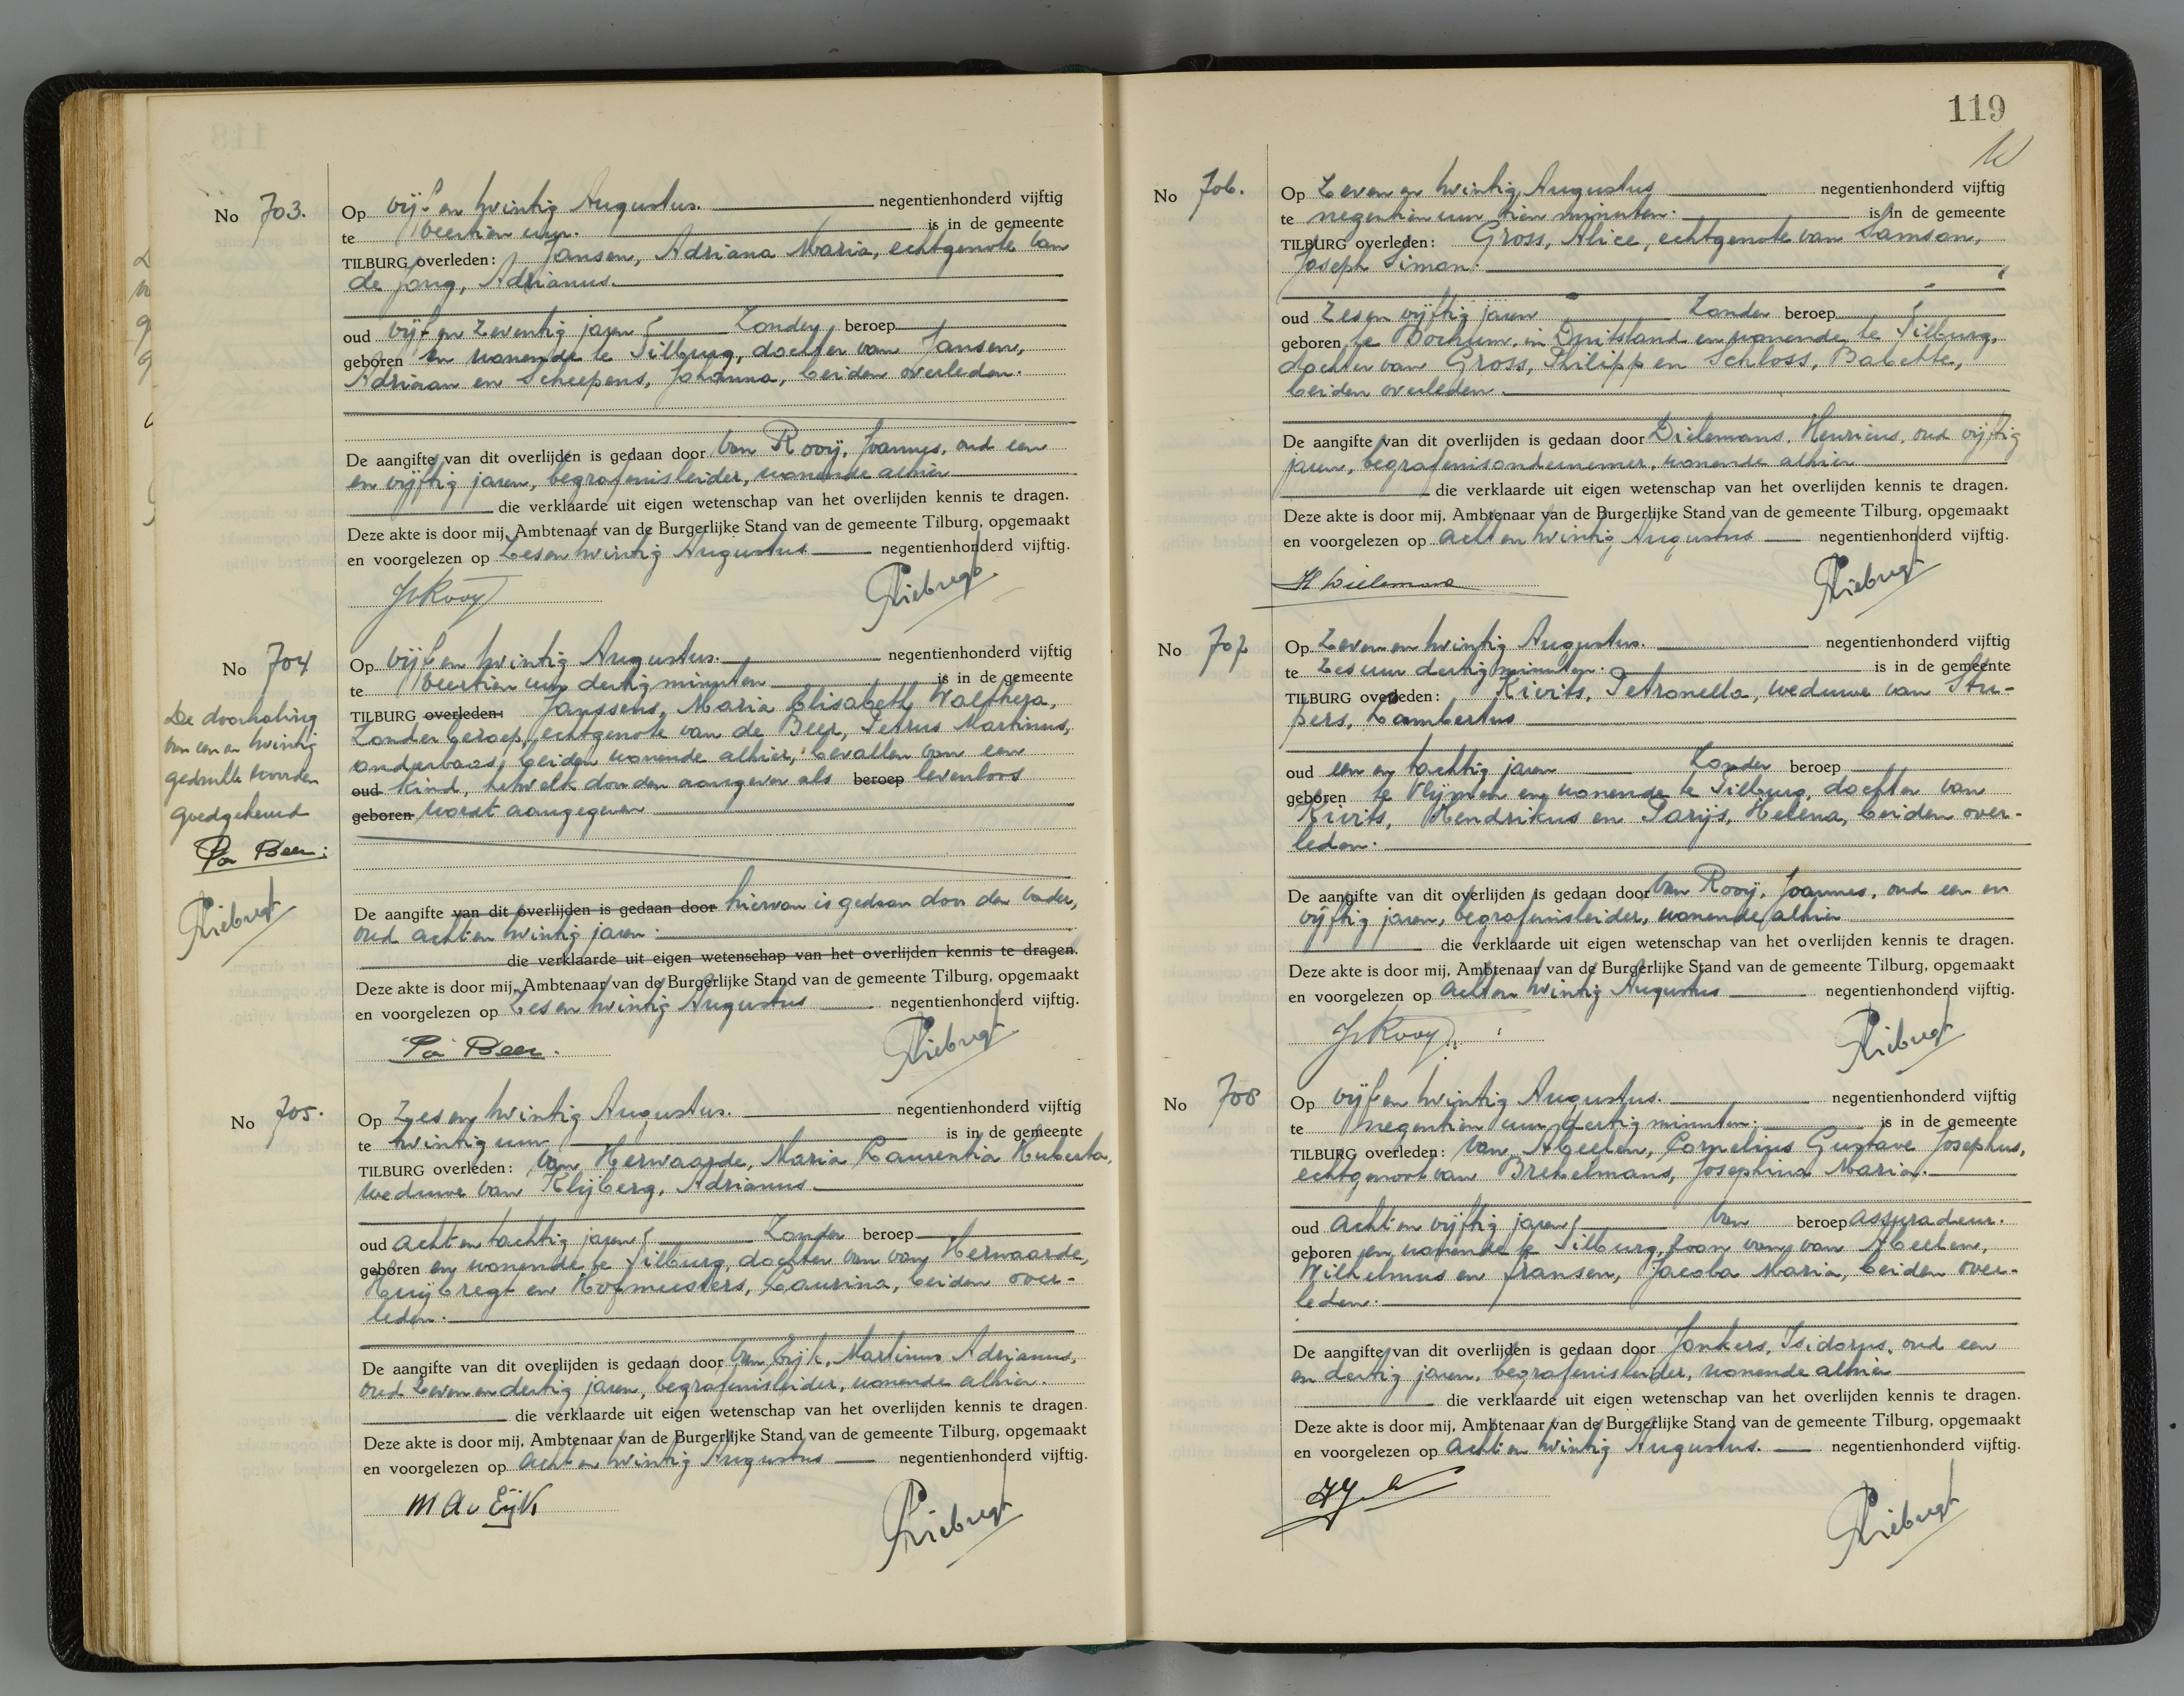 No 703.
Op vijf en twintig Augustus. negentienhonderd vijftig
te veertien uur. is in de gemeente
TILBURG overleden: Jansen, Adriana Maria, echtgenote van
de Jong, Adrianus.
oud vijf en zeventig jaren zonder beroep
geboren en wonende te Tilburg, dochter van Jansen,
Adriaan en Scheepens, Johanna, beiden overleden.
De aangifte van dit overlijden is gedaan door van Rooij, Joannes, oud een
en vijftig jaren, begrafenisleider, wonende alhier
die verklaarde uit eigen wetenschap van het overlijden kennis te dragen.
Deze akte is door mij, Ambtenaar van de Burgerlijke Stand van de gemeente Tilburg, opgemaakt
en voorgelezen op zes en twintig Augustus negentienhonderd vijftig.
JvRooy
No 704
Op vijf en twintig Augustus. negentienhonderd vijftig
te veertien uur dertig minuten is in de gemeente
TILBURG overleden: Janssens, Maria Elisabeth Walthera,
zonder beroep, echtgenote van de Beer, Petrus Martinus,
onderbaas, beiden wonende alhier, bevallen van een
oud kind, hetwelk aangegeven als beroep levenloos
geboren wordt aangegeven
De doorhaling
van een en twintig
gedrukte woorden
goedgekeurd
De aangifte van dit overlijden is gedaan door hiervan is gedaan door den vader,
oud acht en twintig jaren.
die verklaarde uit eigen wetenschap van het overlijden kennis te dragen.
Deze akte is door mij, Ambtenaar van de Burgerlijke Stand van de gemeente Tilburg, opgemaakt
en voorgelezen op zes en twintig Augustus negentienhonderd vijftig.
No 705.
Op zes en twintig Augustus. negentienhonderd vijftig
te twintig uur is in de gemeente
TILBURG overleden: van Herwaarde, Maria Laurentia Huberta,
weduwe van Klijberg, Adrianus
oud acht en tachtig jaren zonder beroep
geboren en wonende te Tilburg, dochter van van Herwaarde,
Huijbregt en Hofmeesters, Laurina, beiden over-
leden.
De aangifte van dit overlijden is gedaan door van Eijk, Martinus Adrianus,
oud zeven en dertig jaren, begrafenisleider, wonende alhier.
die verklaarde uit eigen wetenschap van het overlijden kennis te dragen.
Deze akte is door mij, Ambtenaar van de Burgerlijke Stand van de gemeente Tilburg, opgemaakt
en voorgelezen op acht en twintig Augustus negentienhonderd vijftig.
M A v Eijk
119
No 706.
Op zeven en twintig Augustus negentienhonderd vijftig
te negentien uur tien minuten. is in de gemeente
TILBURG overleden: Gross, Alice, echtgenote van Samson,
Joseph Simon.
oud zes en vijftig jaren zonder beroep
geboren te Bochum, in Duitsland en wonende te Tilburg,
dochter van Gross, Philipp en Schloss, Babette,
beiden overleden.
De aangifte van dit overlijden is gedaan door Dielemans, Henricus, oud vijftig
jaren, begrafenisondernemer, wonende alhier
die verklaarde uit eigen wetenschap van het overlijden kennis te dragen.
Deze akte is door mij, Ambtenaar van de Burgerlijke Stand van de gemeente Tilburg, opgemaakt
en voorgelezen op acht en twintig Augustus negentienhonderd vijftig.
H Dielemans
No 707
Op zeven en twintig Augustus. negentienhonderd vijftig
te zes uur dertig minuten. is in de gemeente
TILBURG overleden: Kivits, Petronella, weduwe van Stu-
pers, Lambertus
oud een en tachtig jaren zonder beroep
geboren te Vlijmen en wonende te Tilburg, dochter van
Kivits, Hendrikus en Parijs, Helena, beiden over-
leden.
De aangifte van dit overlijden is gedaan door van Rooij, Joannes, oud een en
vijftig jaren, begrafenisleider, wonende alhier
die verklaarde uit eigen wetenschap van het overlijden kennis te dragen.
Deze akte is door mij, Ambtenaar van de Burgerlijke Stand van de gemeente Tilburg, opgemaakt
en voorgelezen op acht en twintig Augustus negentienhonderd vijftig.
JvRooy
No 708
Op vijf en twintig Augustus. negentienhonderd vijftig
te negentien uur dertig minuten. is in de gemeente
TILBURG overleden: van Abeelen, Cornelius Gustave Josephus,
echtgenoot van Brekelmans, Josephina Maria.
oud acht en vijftig jaren van beroep assuradeur.
geboren en wonende te Tilburg, zoon van van Abeelen,
Wilhelmus en Fransen, Jacoba Maria, beiden over-
leden.
De aangifte van dit overlijden is gedaan door Jonkers, Isidorus, oud een
en dertig jaren, begrafenisleider, wonende alhier
die verklaarde uit eigen wetenschap van het overlijden kennis te dragen.
Deze akte is door mij, Ambtenaar van de Burgerlijke Stand van de gemeente Tilburg, opgemaakt
en voorgelezen op acht en twintig Augustus. negentienhonderd vijftig.